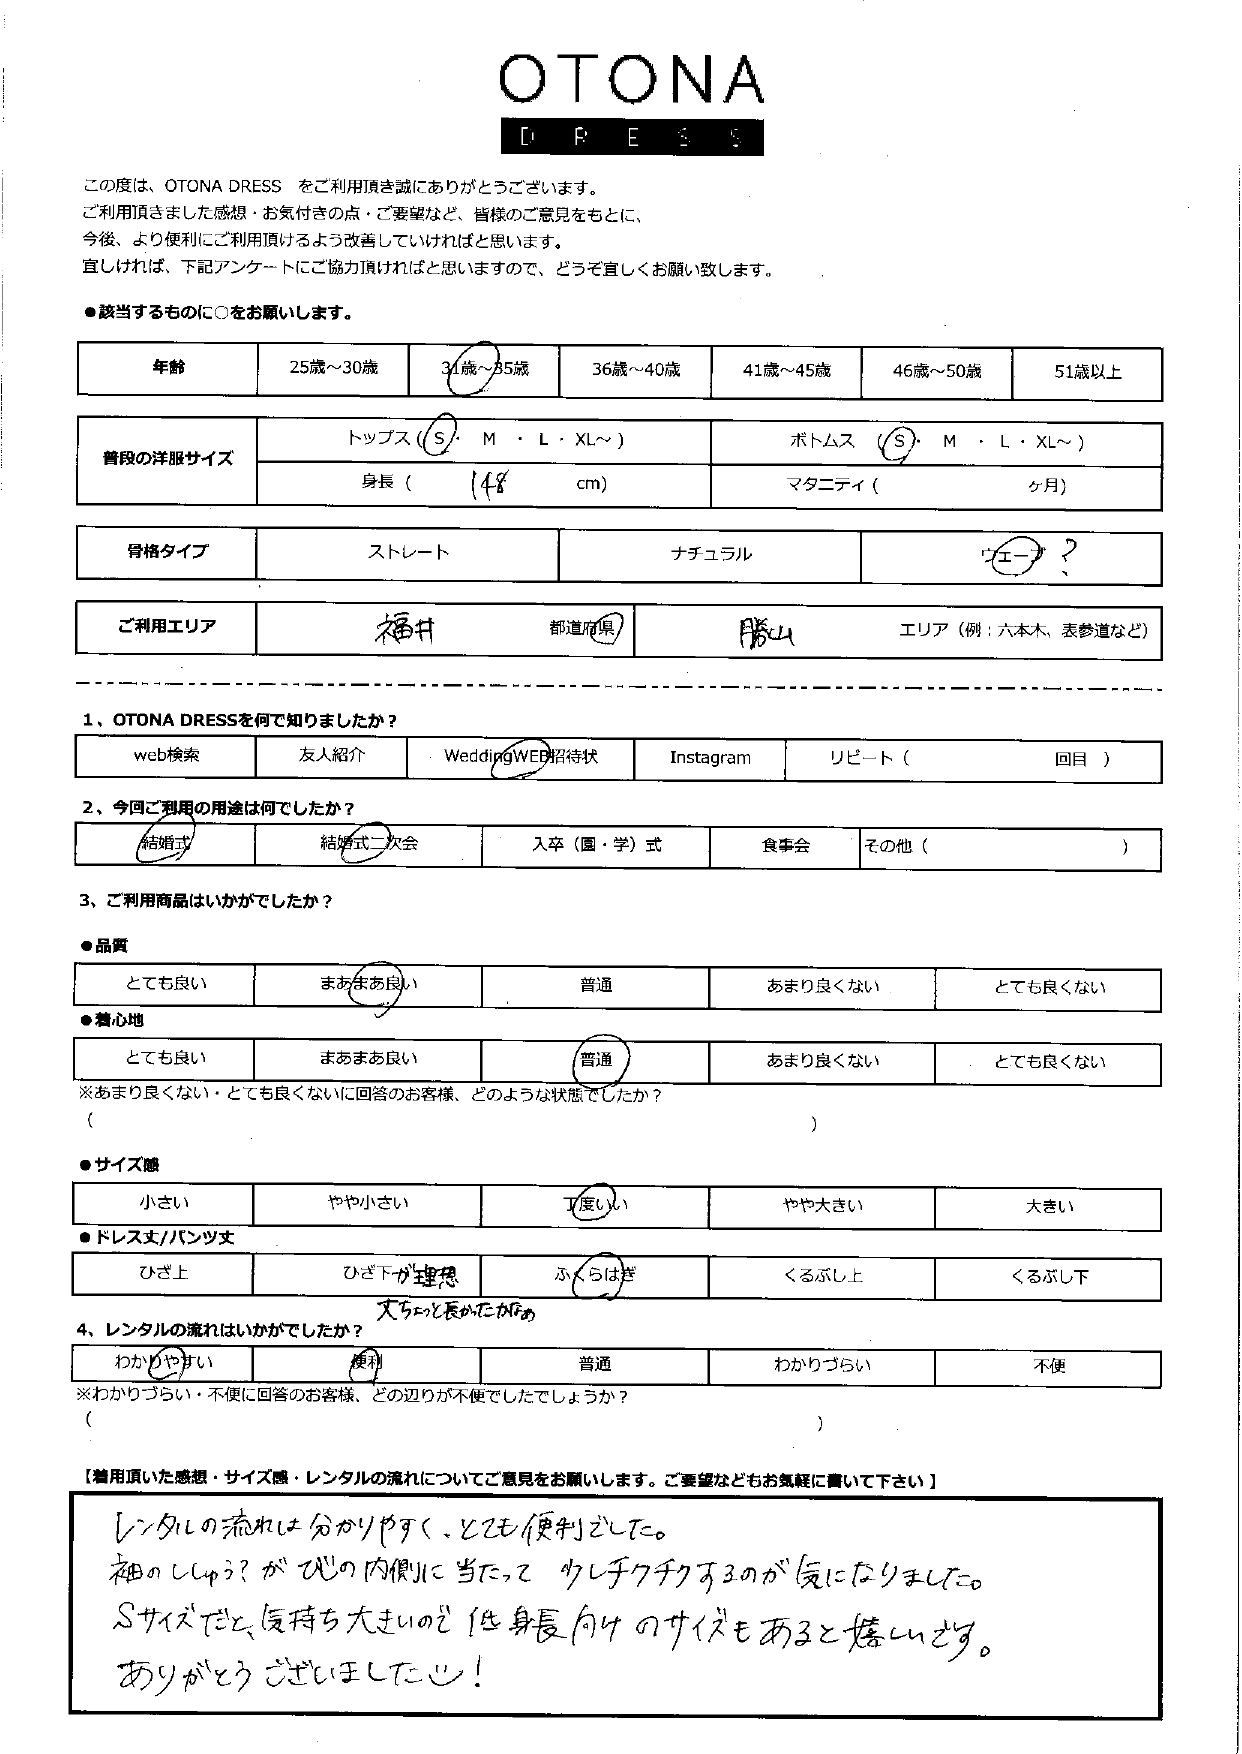 OTONA
DRESS
この度は、OTONA DRESS　をご利用頂き誠にありがとうございます。
ご利用頂きました感想・お気付きの点・ご要望など、皆様のご意見をもとに、
今後、より便利にご利用頂けるよう改善していければと思います。
宜しければ、下記アンケートにご協力頂ければと思いますので、どうぞ宜しくお願い致します。
●該当するものに○をお願いします。
年齢 25歳～30歳 31歳～35歳 36歳～40歳 41歳～45歳 46歳～50歳 51歳以上
普段の洋服サイズ トップス (S・ M ・ L ・ XL～ ) ボトムス (S・ M ・ L ・ XL～ )
身長 ( 148 cm) マタニティ ( ヶ月)
骨格タイプ ストレート ナチュラル ウェーブ ?
ご利用エリア 福井 都道府県 勝山 エリア（例：六本木、表参道など）
1、OTONA DRESSを何で知りましたか？
web検索 友人紹介 WeddingWEB招待状 Instagram リピート（ 回目 ）
2、今回ご利用の用途は何でしたか？
結婚式 結婚式二次会 入卒（園・学）式 食事会 その他（ ）
3、ご利用商品はいかがでしたか？
●品質
とても良い まあまあ良い 普通 あまり良くない とても良くない
●着心地
とても良い まあまあ良い 普通 あまり良くない とても良くない
※あまり良くない・とても良くないに回答のお客様、どのような状態でしたか？
( )
●サイズ感
小さい やや小さい 丁度いい やや大きい 大きい
●ドレス丈/パンツ丈
ひざ上 ひざ下が理想 ふくらはぎ くるぶし上 くるぶし下
丈ちょっと長かったかなぁ
4、レンタルの流れはいかがでしたか？
わかりやすい 便利 普通 わかりづらい 不便
※わかりづらい・不便に回答のお客様、どの辺りが不便でしたでしょうか？
( )
【着用頂いた感想・サイズ感・レンタルの流れについてご意見をお願いします。ご要望などもお気軽に書いて下さい】
レンタルの流れは分かりやすく、とても便利でした。
袖のししゅう?がひじの内側に当たって少しチクチクするのが気になりました。
Sサイズだと、気持ち大きいので低身長向けのサイズもあると嬉しいです。
ありがとうございました!